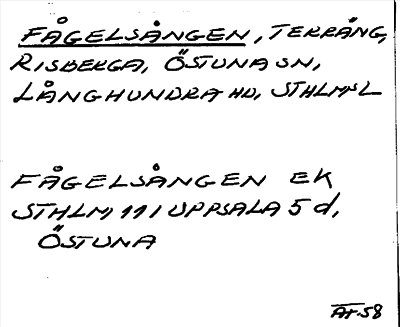 FÅGELSÅNGEN, TERRÄNG,
RISBERGA, ÖSTUNA SN,
LÅNGHUNDRA HD, STHLMSL
FÅGELSÅNGEN EK
STHLM, 111 UPPSALA 5 d,
ÖSTUNA
AT-58